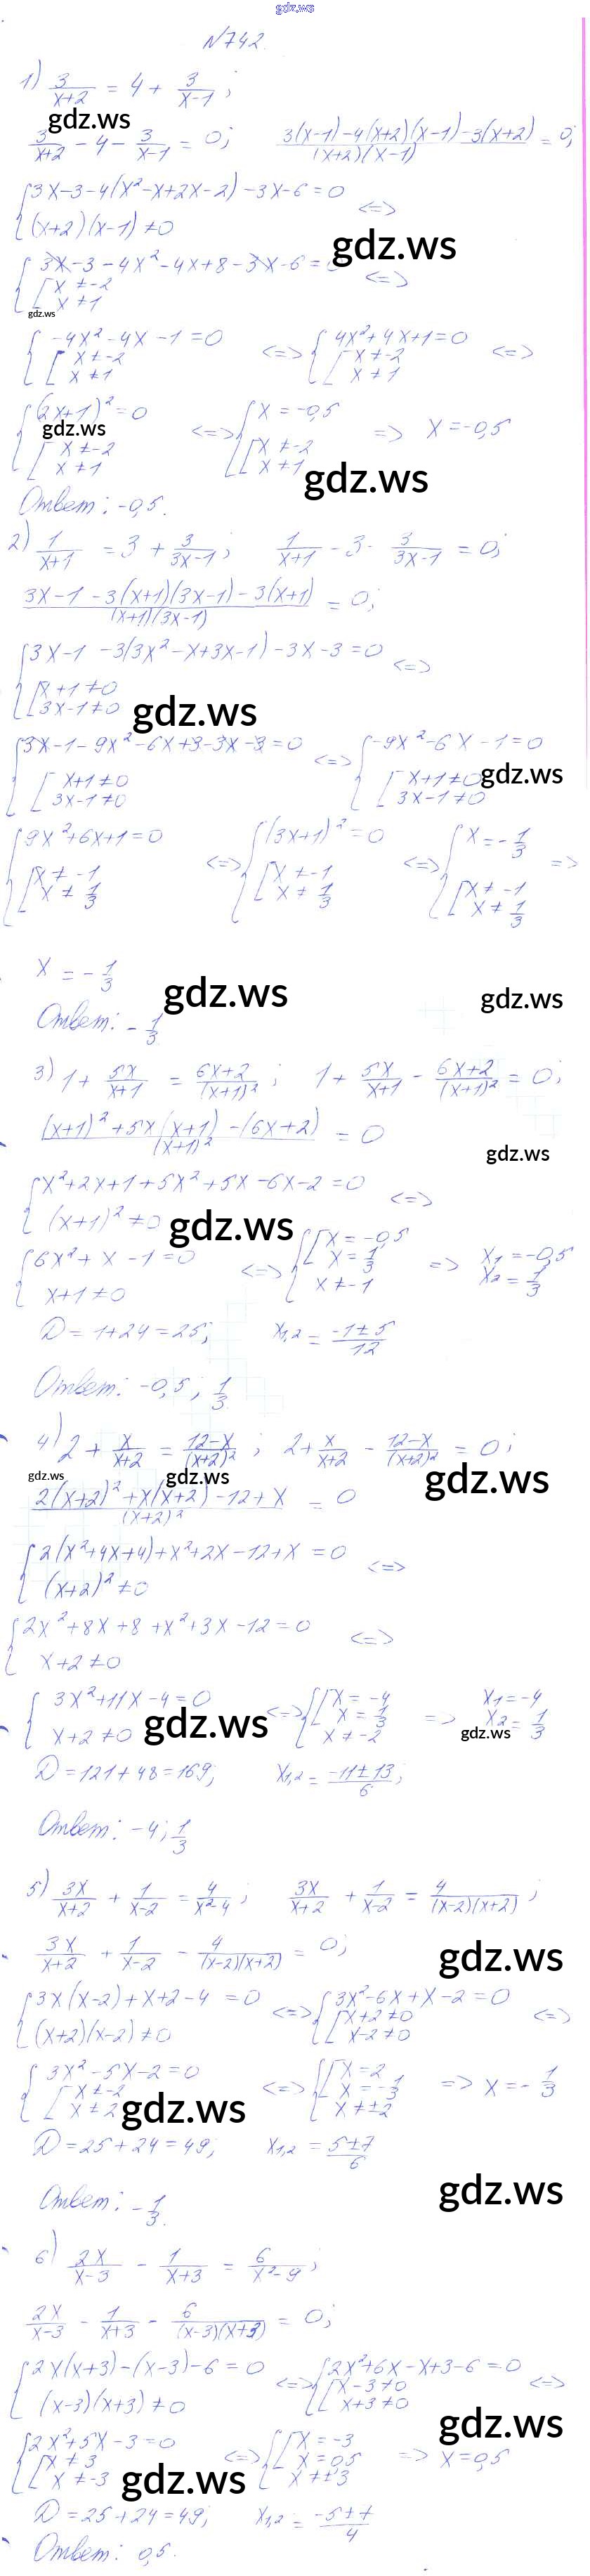 gdz.ws
N742.
1) 3/(x+2) = 4 + 3/(x-1);
gdz.ws
3/(x+2) - 4 - 3/(x-1) = 0; (3(x-1)-4(x+2)(x-1)-3(x+2))/((x+2)(x-1)) = 0;
{3x-3-4(x²-x+2x-2)-3x-6=0 <=>
(x+2)(x-1)≠0
gdz.ws
{3x-3-4x²-4x+8-3x-6=0 <=>
[x≠-2
x≠1
gdz.ws
{-4x²-4x-1=0 <=> {4x²+4x+1=0 <=>
[x≠-2 [x≠-2
x≠1 x≠1
{(2x+1)²=0 <=> {x=-0,5 => x=-0,5
gdz.ws
[x≠-2 [x≠-2
x≠1 x≠1
gdz.ws
Ответ: -0,5.
2) 1/(x+1) = 3 + 3/(3x-1); 1/(x+1) - 3 - 3/(3x-1) = 0;
(3x-1-3(x+1)(3x-1)-3(x+1))/((x+1)(3x-1)) = 0;
{3x-1-3(3x²-x+3x-1)-3x-3=0 <=>
[x+1≠0
3x-1≠0
gdz.ws
{3x-1-9x²-6x+3-3x-3=0 <=> {-9x²-6x-1=0
[x+1≠0 [x+1≠0
3x-1≠0 3x-1≠0
gdz.ws
{9x²+6x+1=0 <=> {(3x+1)²=0 <=> {x=-1/3 =>
[x≠-1 [x≠-1 [x≠-1
x≠1/3 x≠1/3 x≠1/3
x = -1/3
gdz.ws
gdz.ws
Ответ: -1/3
3) 1 + 5x/(x+1) = (6x+2)/(x+1)²; 1 + 5x/(x+1) - (6x+2)/(x+1)² = 0;
((x+1)²+5x(x+1)-(6x+2))/(x+1)² = 0
gdz.ws
{x²+2x+1+5x²+5x-6x-2=0 <=>
(x+1)²≠0
gdz.ws
{6x²+x-1=0 <=> {[x=-0,5 => x₁=-0,5
x+1≠0 x=1/3 x₂=1/3
x≠-1
D=1+24=25; x₁,₂=(-1±5)/12
Ответ: -0,5; 1/3.
4) 2 + x/(x+2) = (12-x)/(x+2)²; 2 + x/(x+2) - (12-x)/(x+2)² = 0;
gdz.ws
gdz.ws
gdz.ws
(2(x+2)²+x(x+2)-12+x)/(x+2)² = 0
{2(x²+4x+4)+x²+2x-12+x=0 <=>
(x+2)²≠0
{2x²+8x+8+x²+3x-12=0 <=>
x+2≠0
{3x²+11x-4=0 <=> {[x=-4 => x₁=-4
x+2≠0 x=1/3 x₂=1/3
x≠-2
gdz.ws
gdz.ws
D=121+48=169; x₁,₂=(-11±13)/6;
Ответ: -4; 1/3
5) 3x/(x+2) + 1/(x-2) = 4/(x²-4); 3x/(x+2) + 1/(x-2) = 4/((x-2)(x+2));
3x/(x+2) + 1/(x-2) - 4/((x-2)(x+2)) = 0;
gdz.ws
{3x(x-2)+x+2-4=0 <=> {3x²-6x+x-2=0 <=>
(x+2)(x-2)≠0 [x+2≠0
x-2≠0
{3x²-5x-2=0 <=> {[x=2 => x=-1/3
[x≠-2 x=-1/3
x≠2 x≠±2
gdz.ws
D=25+24=49; x₁,₂=(5±7)/6
gdz.ws
Ответ: -1/3.
6) 2x/(x-3) - 1/(x+3) = 6/(x²-9);
2x/(x-3) - 1/(x+3) - 6/((x-3)(x+3)) = 0;
{2x(x+3)-(x-3)-6=0 <=> {2x²+6x-x+3-6=0 <=>
(x-3)(x+3)≠0 [x-3≠0
x+3≠0
gdz.ws
{2x²+5x-3=0 <=> {[x=-3 => x=0,5
[x≠3 x=0,5
x≠-3 x≠±3
gdz.ws
D=25+24=49; x₁,₂=(-5±7)/4
Ответ: 0,5.